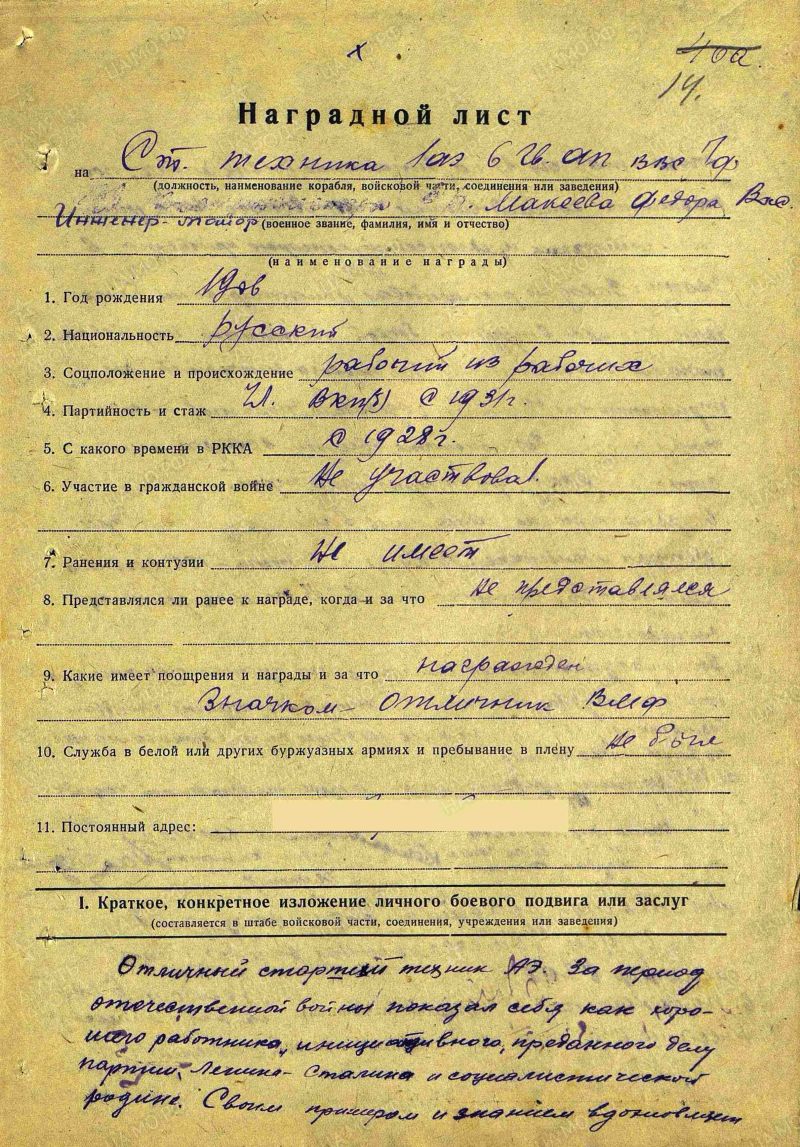 40а.
14.
Наградной лист
на Ст. техника 1 аэ 6 Гв. ап ВВС ЧФ
(должность, наименование корабля, войсковой части, соединения или заведения)
Макеева Федора Вас.
Инженер-майор (военное звание, фамилия, имя и отчество)
(наименование награды)
1. Год рождения
2. Национальность русский
3. Соцположение и происхождение рабочий из рабочих
4. Партийность и стаж Чл. ВКП(б) с 1931г.
5. С какого времени в РККА с 1928г.
6. Участие в гражданской войне Не участвовал.
7. Ранения и контузии Не имеет
8. Представлялся ли ранее к награде, когда и за что Не представлялся
9. Какие имеет поощрения и награды и за что награжден
Значком - отличник ВМФ
10. Служба в белой или других буржуазных армиях и пребывание в плену Не был
11. Постоянный адрес:
I. Краткое, конкретное изложение личного боевого подвига или заслуг
(составляется в штабе войсковой части, соединения, учреждения или заведения)
Отличный старший техник АЭ. За период
отечественной войны показал себя как хоро-
шего работника, инициативного, преданного делу
партии Ленина-Сталина и социалистической
родине. Своим примером и знанием вдохновляет